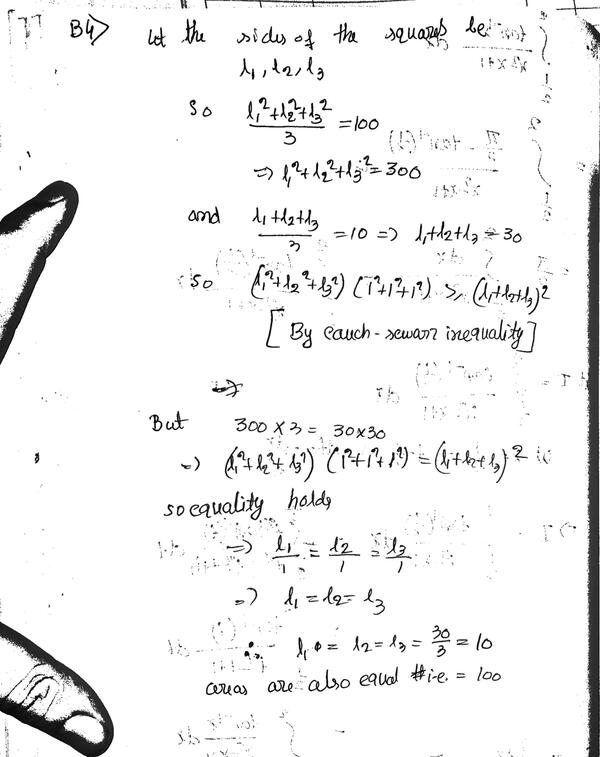 B4) Let the sides of the squares be
l₁, l₂, l₃
So (l₁²+l₂²+l₃²)/3 = 100
=> l₁²+l₂²+l₃² = 300
and (l₁+l₂+l₃)/3 = 10 => l₁+l₂+l₃ = 30
So (l₁²+l₂²+l₃²) (1²+1²+1²) ≥ (l₁+l₂+l₃)²
[By cauch-sewarr inequality]
But 300 × 3 = 30×30
=> (l₁²+l₂²+l₃²) (1²+1²+1²) = (l₁+l₂+l₃)²
so equality holds
=> l₁/1 = l₂/1 = l₃/1
=> l₁ = l₂ = l₃
∴ l₁ = l₂ = l₃ = 30/3 = 10
areas are also equal i.e. = 100